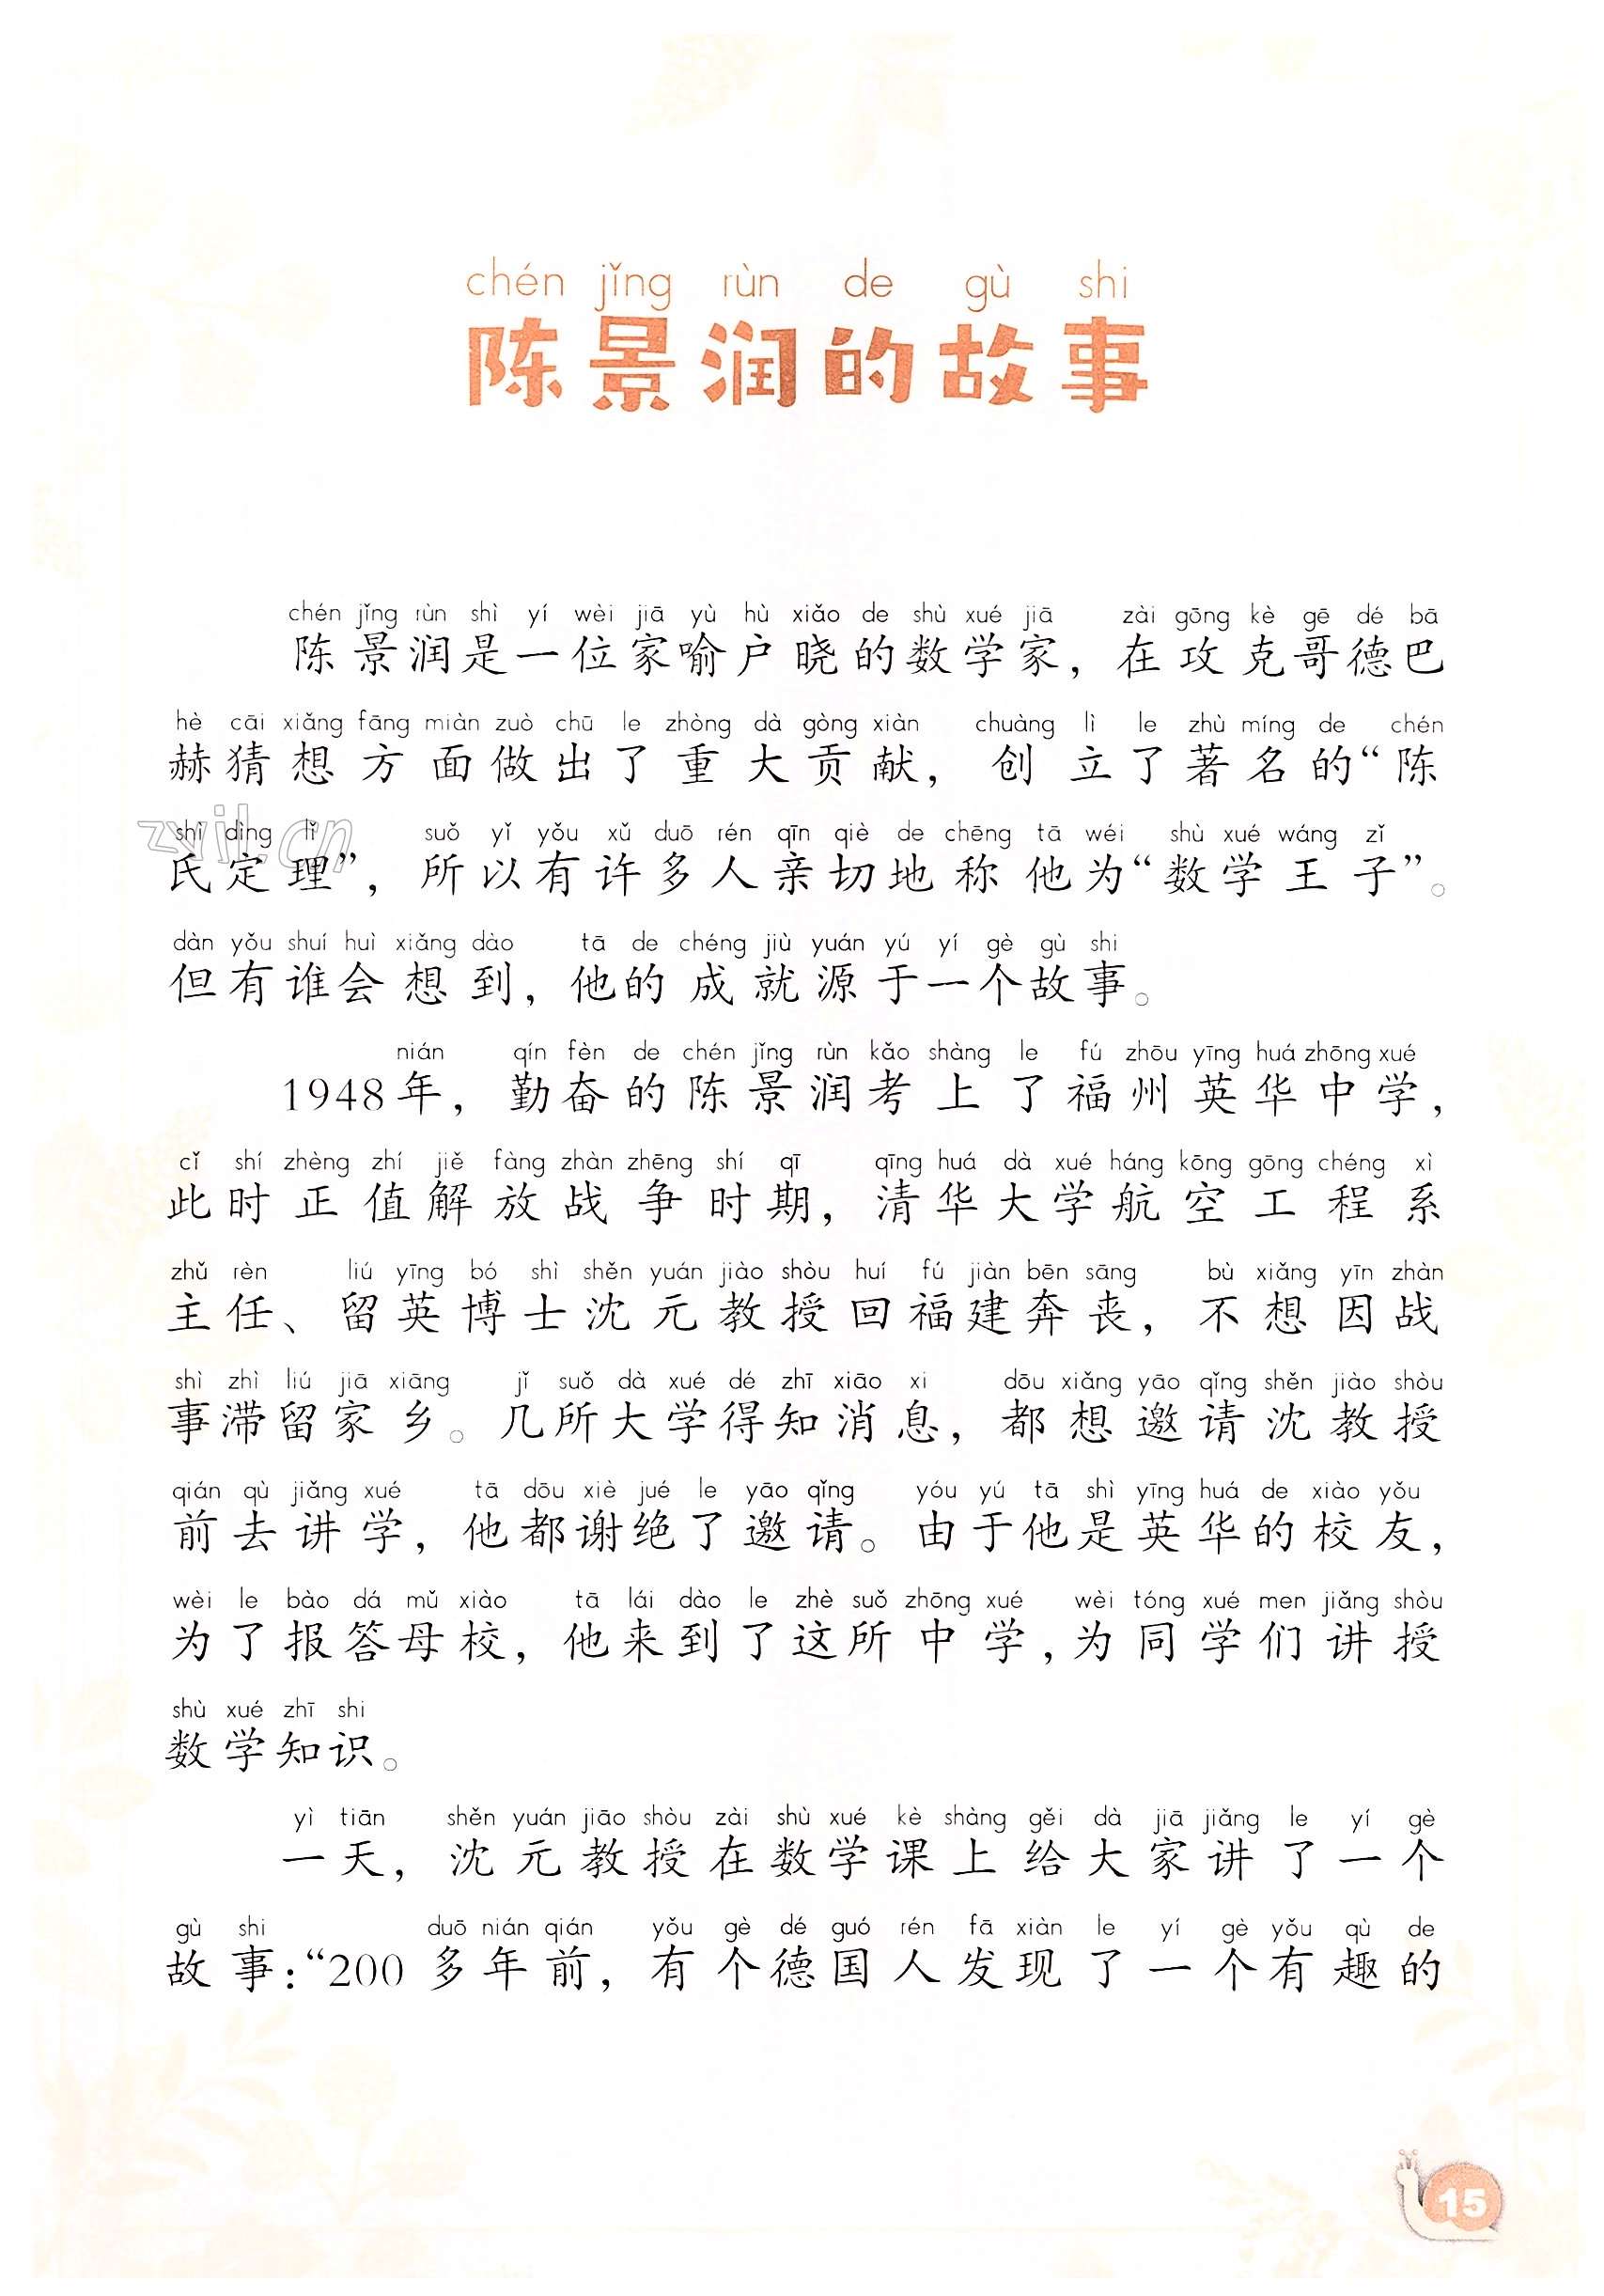 chén jǐng rùn de gù shi
陈景润的故事
chén jǐng rùn shì yí wèi jiā yù hù xiǎo de shù xué jiā zài gōng kè gē dé bā
陈景润是一位家喻户晓的数学家，在攻克哥德巴
hè cāi xiǎng fāng miàn zuò chū le zhòng dà gòng xiàn chuàng lì le zhù míng de chén
赫猜想方面做出了重大贡献，创立了著名的“陈
shì dìng lǐ suǒ yǐ yǒu xǔ duō rén qīn qiè de chēng tā wéi shù xué wáng zǐ
氏定理”，所以有许多人亲切地称他为“数学王子”。
dàn yǒu shuí huì xiǎng dào tā de chéng jiù yuán yú yí gè gù shi
但有谁会想到，他的成就源于一个故事。
nián qín fèn de chén jǐng rùn kǎo shàng le fú zhōu yīng huá zhōng xué
1948年，勤奋的陈景润考上了福州英华中学，
cǐ shí zhèng zhí jiě fàng zhàn zhēng shí qī qīng huá dà xué háng kōng gōng chéng xì
此时正值解放战争时期，清华大学航空工程系
zhǔ rèn liú yīng bó shì shěn yuán jiào shòu huí fú jiàn bēn sāng bù xiǎng yīn zhàn
主任、留英博士沈元教授回福建奔丧，不想因战
shì zhì liú jiā xiāng jǐ suǒ dà xué dé zhī xiāo xi dōu xiǎng yāo qǐng shěn jiào shòu
事滞留家乡。几所大学得知消息，都想邀请沈教授
qián qù jiǎng xué tā dōu xiè jué le yāo qǐng yóu yú tā shì yīng huá de xiào yǒu
前去讲学，他都谢绝了邀请。由于他是英华的校友，
wèi le bào dá mǔ xiào tā lái dào le zhè suǒ zhōng xué wèi tóng xué men jiǎng shòu
为了报答母校，他来到了这所中学，为同学们讲授
shù xué zhī shi
数学知识。
yì tiān shěn yuán jiāo shòu zài shù xué kè shàng gěi dà jiā jiǎng le yí gè
一天，沈元教授在数学课上给大家讲了一个
gù shi duō nián qián yǒu gè dé guó rén fā xiàn le yí gè yǒu qù de
故事：“200多年前，有个德国人发现了一个有趣的
15
zyjl.cn